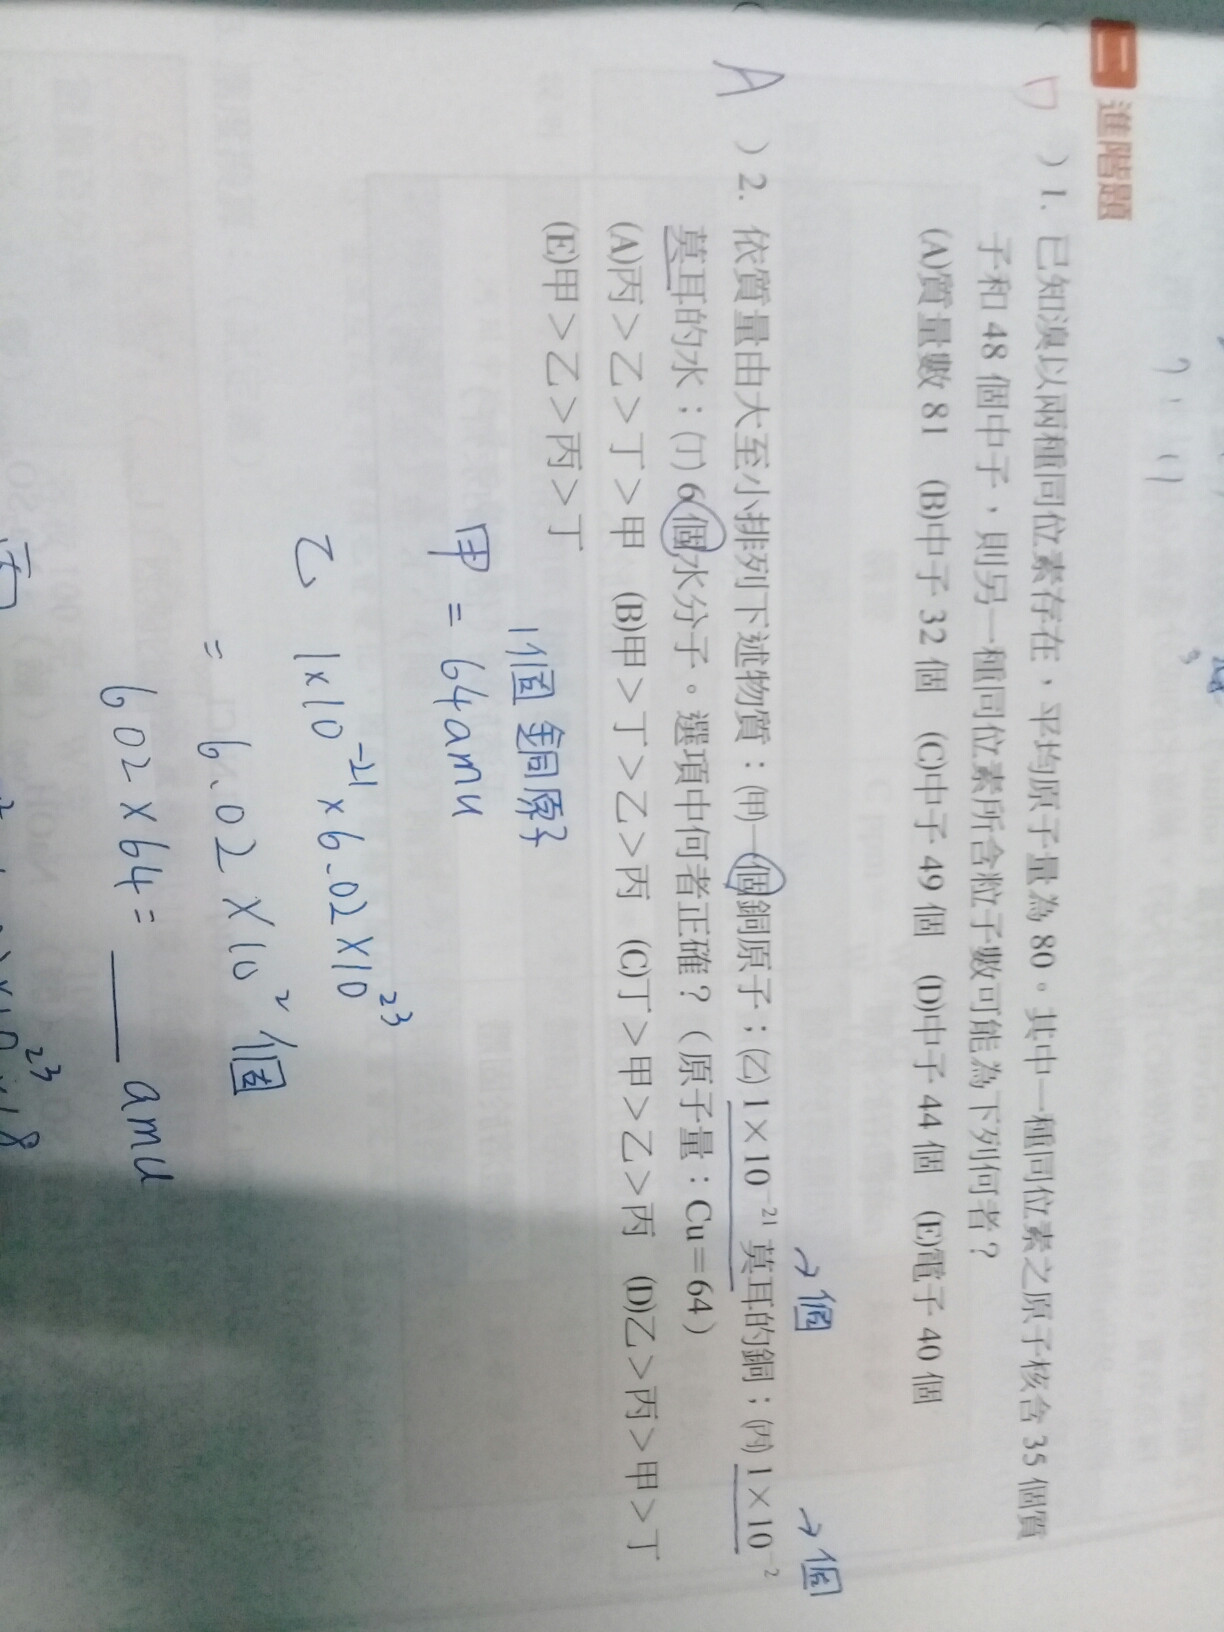 二 進階題
( D ) 1. 已知溴以兩種同位素存在，平均原子量為 80。其中一種同位素之原子核含 35 個質
子和 48 個中子，則另一種同位素所含粒子數可能為下列何者？
(A)質量數 81 (B)中子 32 個 (C)中子 49 個 (D)中子 44 個 (E)電子 40 個
→個 →個
( A ) 2. 依質量由大至小排列下述物質：(甲)一個銅原子；(乙) 1×10⁻²¹ 莫耳的銅；(丙) 1×10⁻²
莫耳的水；(丁) 6 個水分子。選項中何者正確？（原子量：Cu＝64）
(A)丙＞乙＞丁＞甲 (B)甲＞丁＞乙＞丙 (C)丁＞甲＞乙＞丙 (D)乙＞丙＞甲＞丁
(E)甲＞乙＞丙＞丁
1個銅原子
甲 = 64amu
乙 1×10⁻²¹×6.02×10²³
= 6.02×10²個
602×64= ___ amu
丙